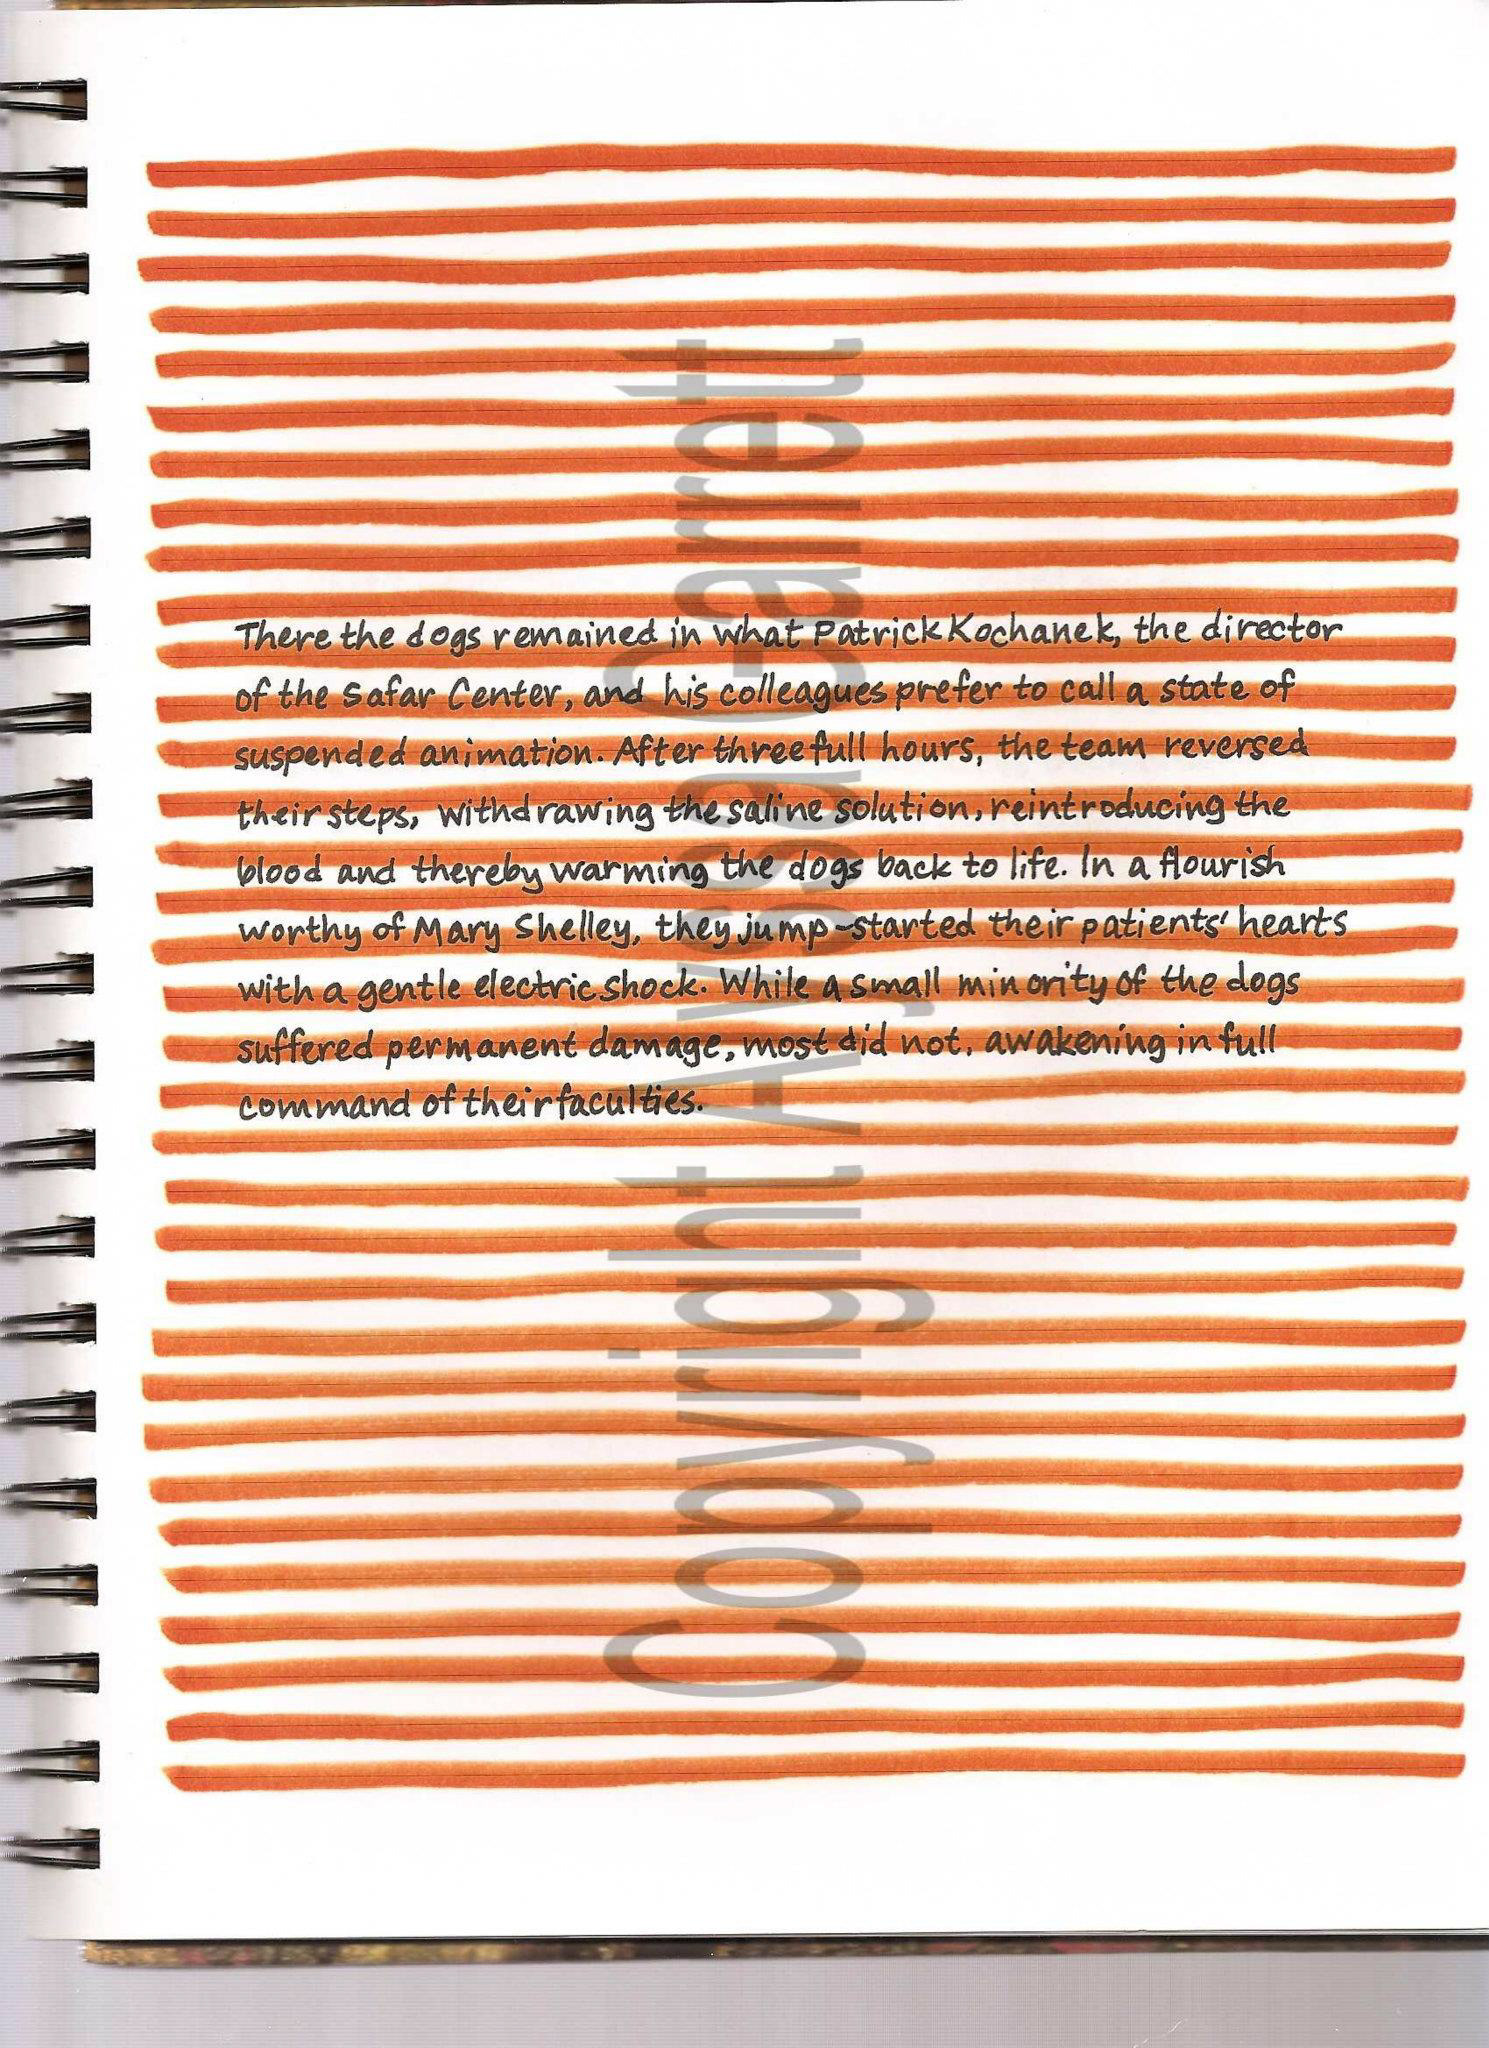 There the dogs remained in what Patrick Kochanek, the director
of the Safar Center, and his colleagues prefer to call a state of
suspended animation. After three full hours, the team reversed
their steps, withdrawing the saline solution, reintroducing the
blood and thereby warming the dogs back to life. In a flourish
worthy of Mary Shelley, they jump-started their patients' hearts
with a gentle electric shock. While a small minority of the dogs
suffered permanent damage, most did not, awakening in full
command of their faculties.
Copyright Alyssa Garret